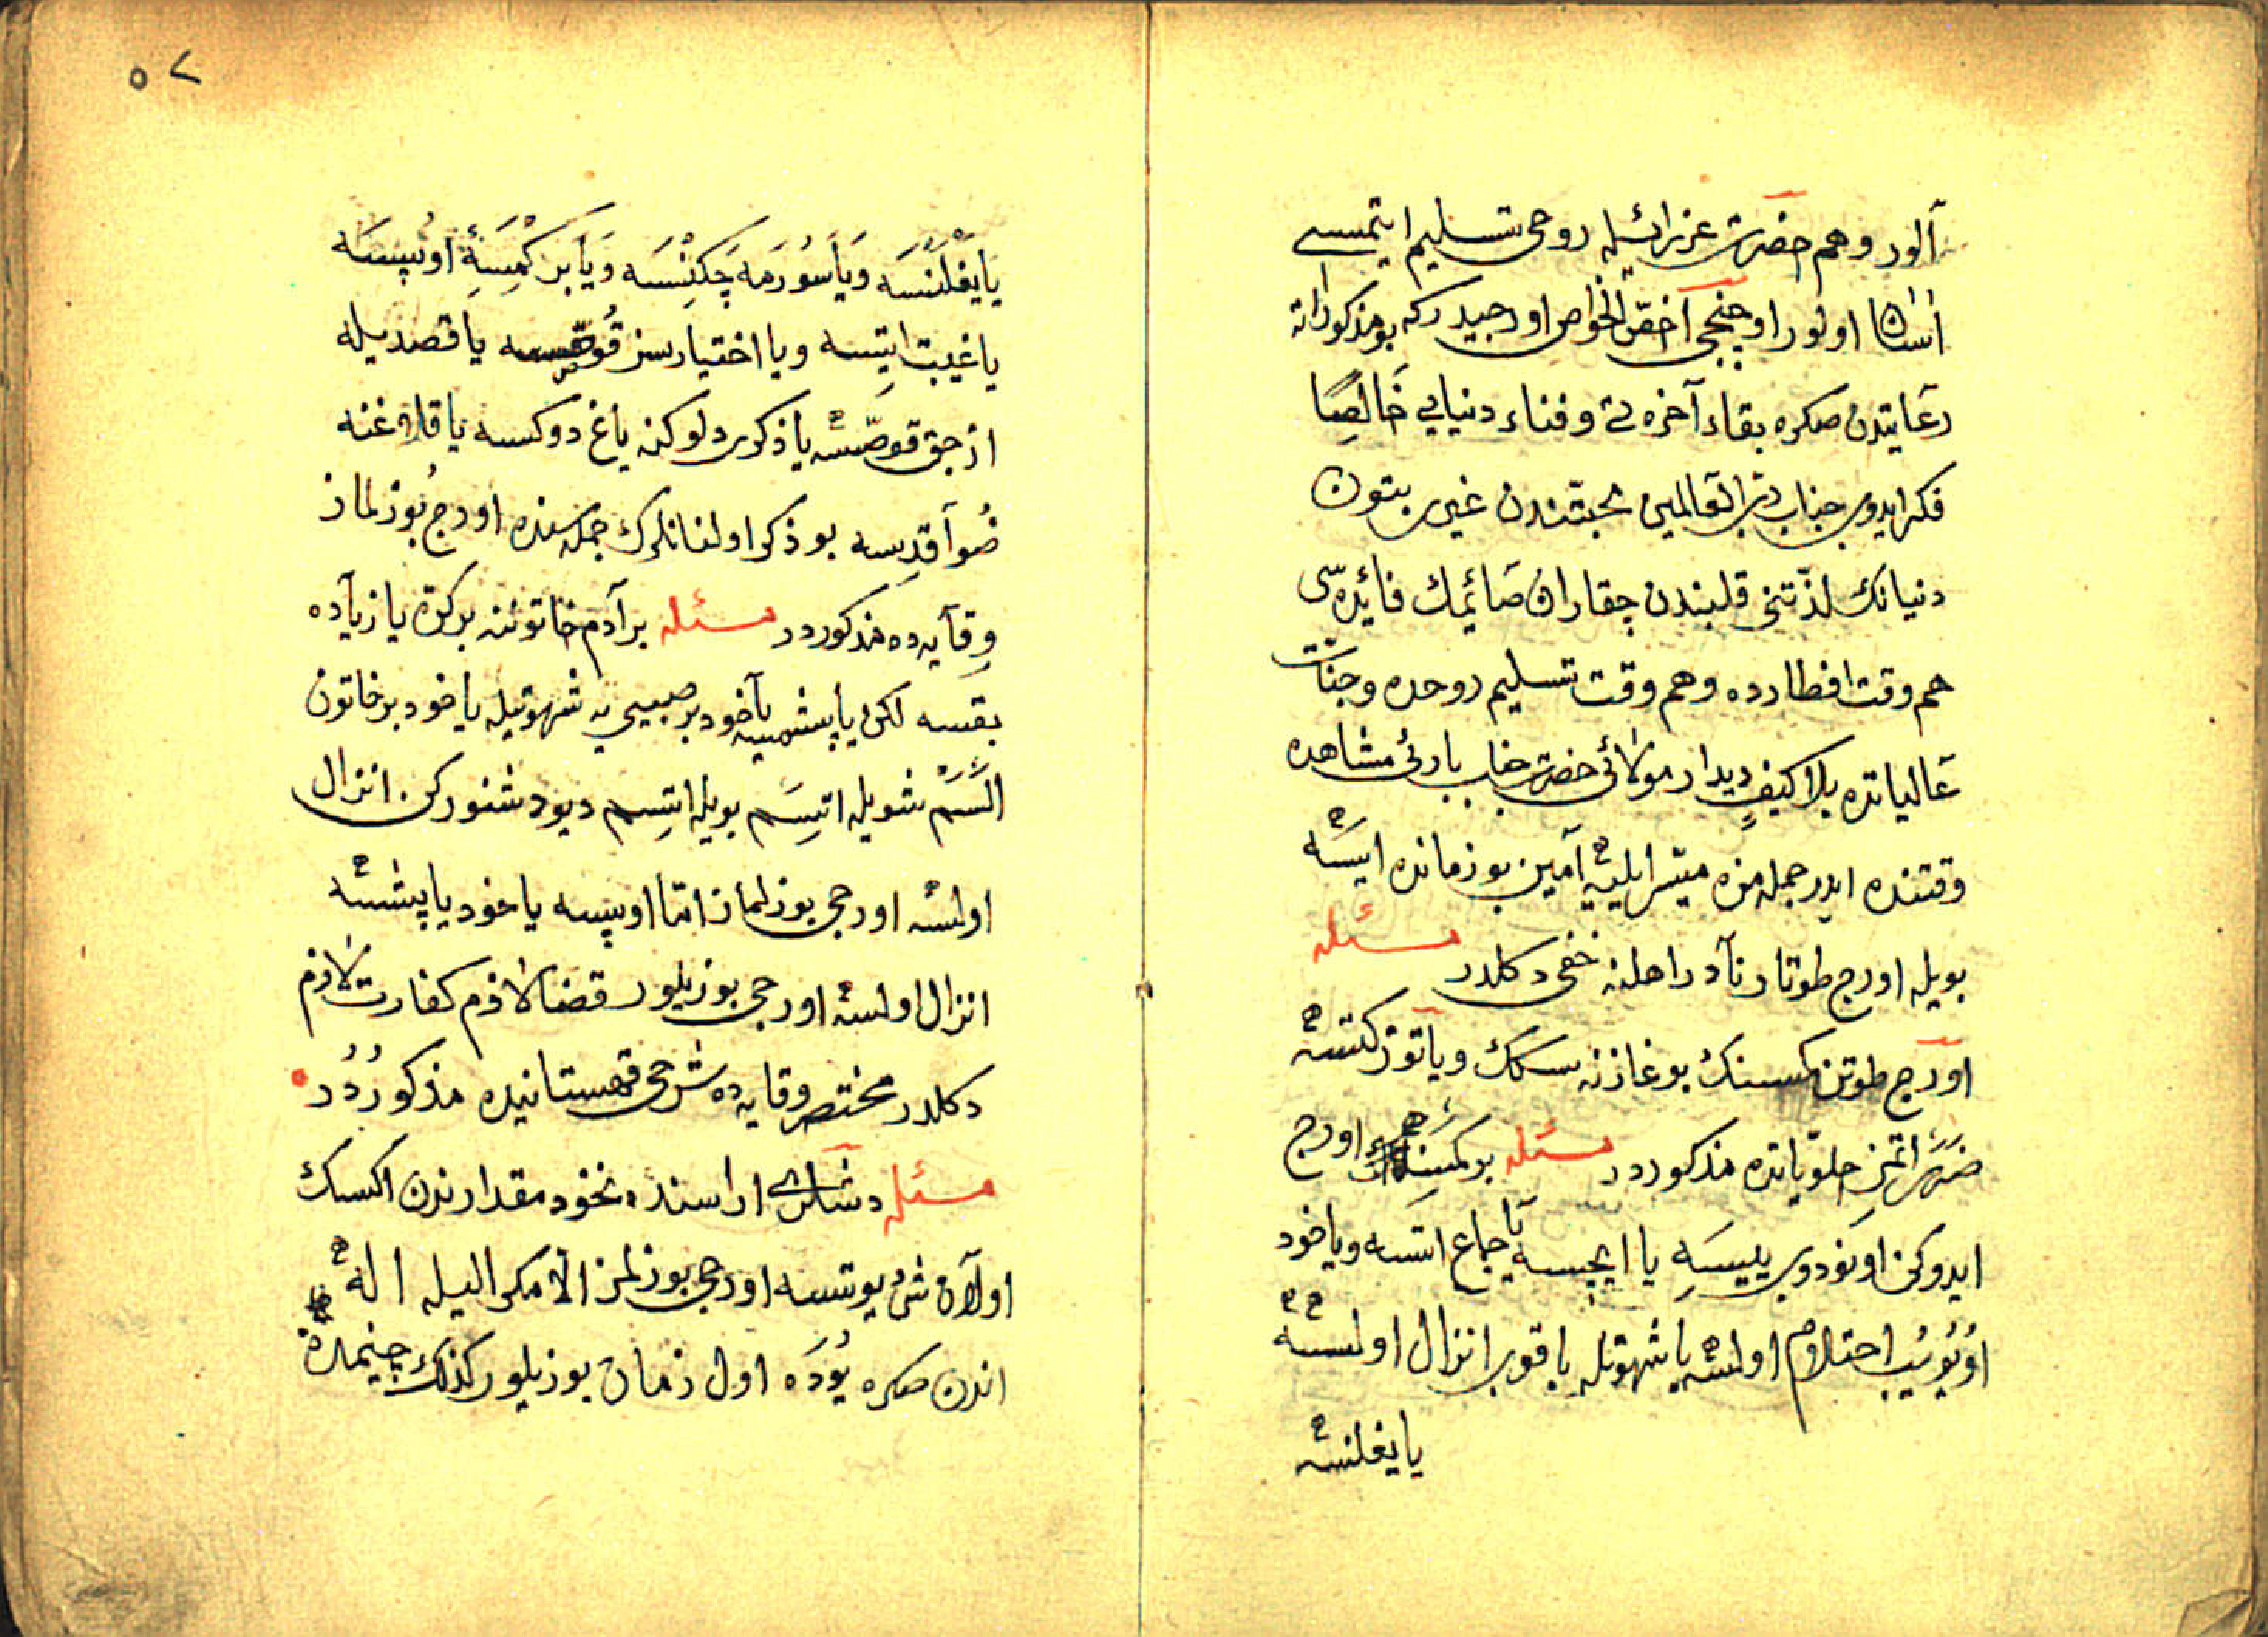 آلور وهم حضرت عزرائیله روحی تسلیم ایتمسی
آسان اولور اوچنجی اخصّ الخواص اورجیدر که بو مذکوراته
رعایتدن صکره بقاء آخره تی وفناء دنیایی خالصًا
فکر ایدوب جناب ربّ العالمین محبتندن غیری بتون
دنیانك لذّتنی قلبندن چقاران صائمك فائده سی
هم وقت افطارده وهم وقت تسلیم روحده وجنّات
عالیاتده بلا کیفٍ دیدار مولائی حضرت جناب باری مشاهده
وقتنده ایدر جمله مزه میسّر ایلیه آمین بو زمانده ایسه
بویله اورج طوتار نادر اهلنه خفی دکلدر مسئله
اورج طوتن کمسنك بوغازنه سکك ویا توز کتسه
ضرر اتمز حلویاتده مذکوردر مسئله بر کمسنه اورج
ایدوکن اونودوب ییسه یا ایچسه یا جماع اتسه ویاخود
اویویب احتلام اولسه یا شهوتله باقوب انزال اولسه
یا یغلنسه
یا یغلنسه ویا سورمه چکنسه ویا بر کمسه ئی اوپسه
یا غیبت ایتسه ویا اختیارسز قوصسه یا قصدیله
ازجق قوصسه یا ذکری دلوکنه یاغ دوکسه یا قلاغنه
صو آقدسه بو ذکر اولنانلرك جمله سنده اورج بوزلماز
وقایه ده مذکوردر مسئله بر آدم خاتوننه بر کره یا زیاده
بقسه لکن یاپشمیسه یاخود بر صبیی یه شهوتیله یاخود بر خاتون
السم شویله اتسم بویله اتسم دیو دشنورکن انزال
اولسه اورجی بوزلماز امّا اوپسه یاخود یاپشسه
انزال اولسه اورجی بوزیلور قضا لازم کفارت لازم
دکلدر مختصر وقایه ده شرحی قهستانیده مذکوردر
مسئله دشلری اراسنده نخود مقدارندن اکسك
اولان شی یوتسه اورجی بوزلمز الّا مکر الیله اله
اندن صکره یوده اول زمان بوزیلور کذلك چینمدن
٥٧